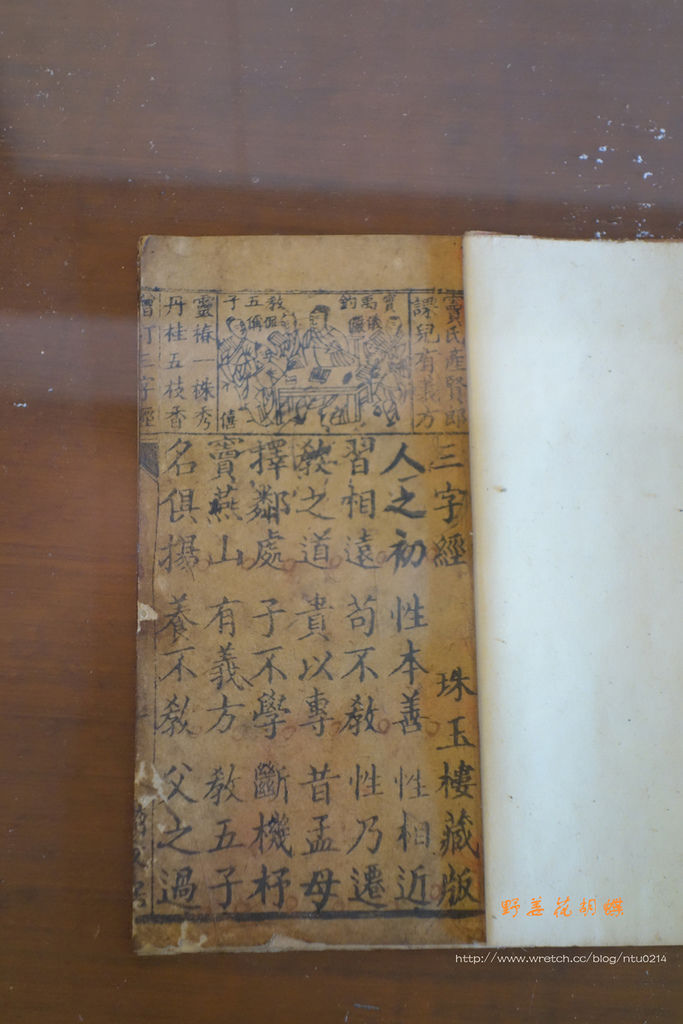 竇氏產賢郎
課兒有義方
竇禹鈞
儀
儼
教五子
侃
偁
僖
靈椿一株秀
丹桂五枝香
增訂三字經
三字經 珠玉樓藏版
人之初 性本善 性相近
習相遠 苟不教 性乃遷
教之道 貴以專 昔孟母
擇鄰處 子不學 斷機杼
竇燕山 有義方 教五子
名俱揚 養不教 父之過
野姜花胡蝶
http://www.wretch.cc/blog/ntu0214